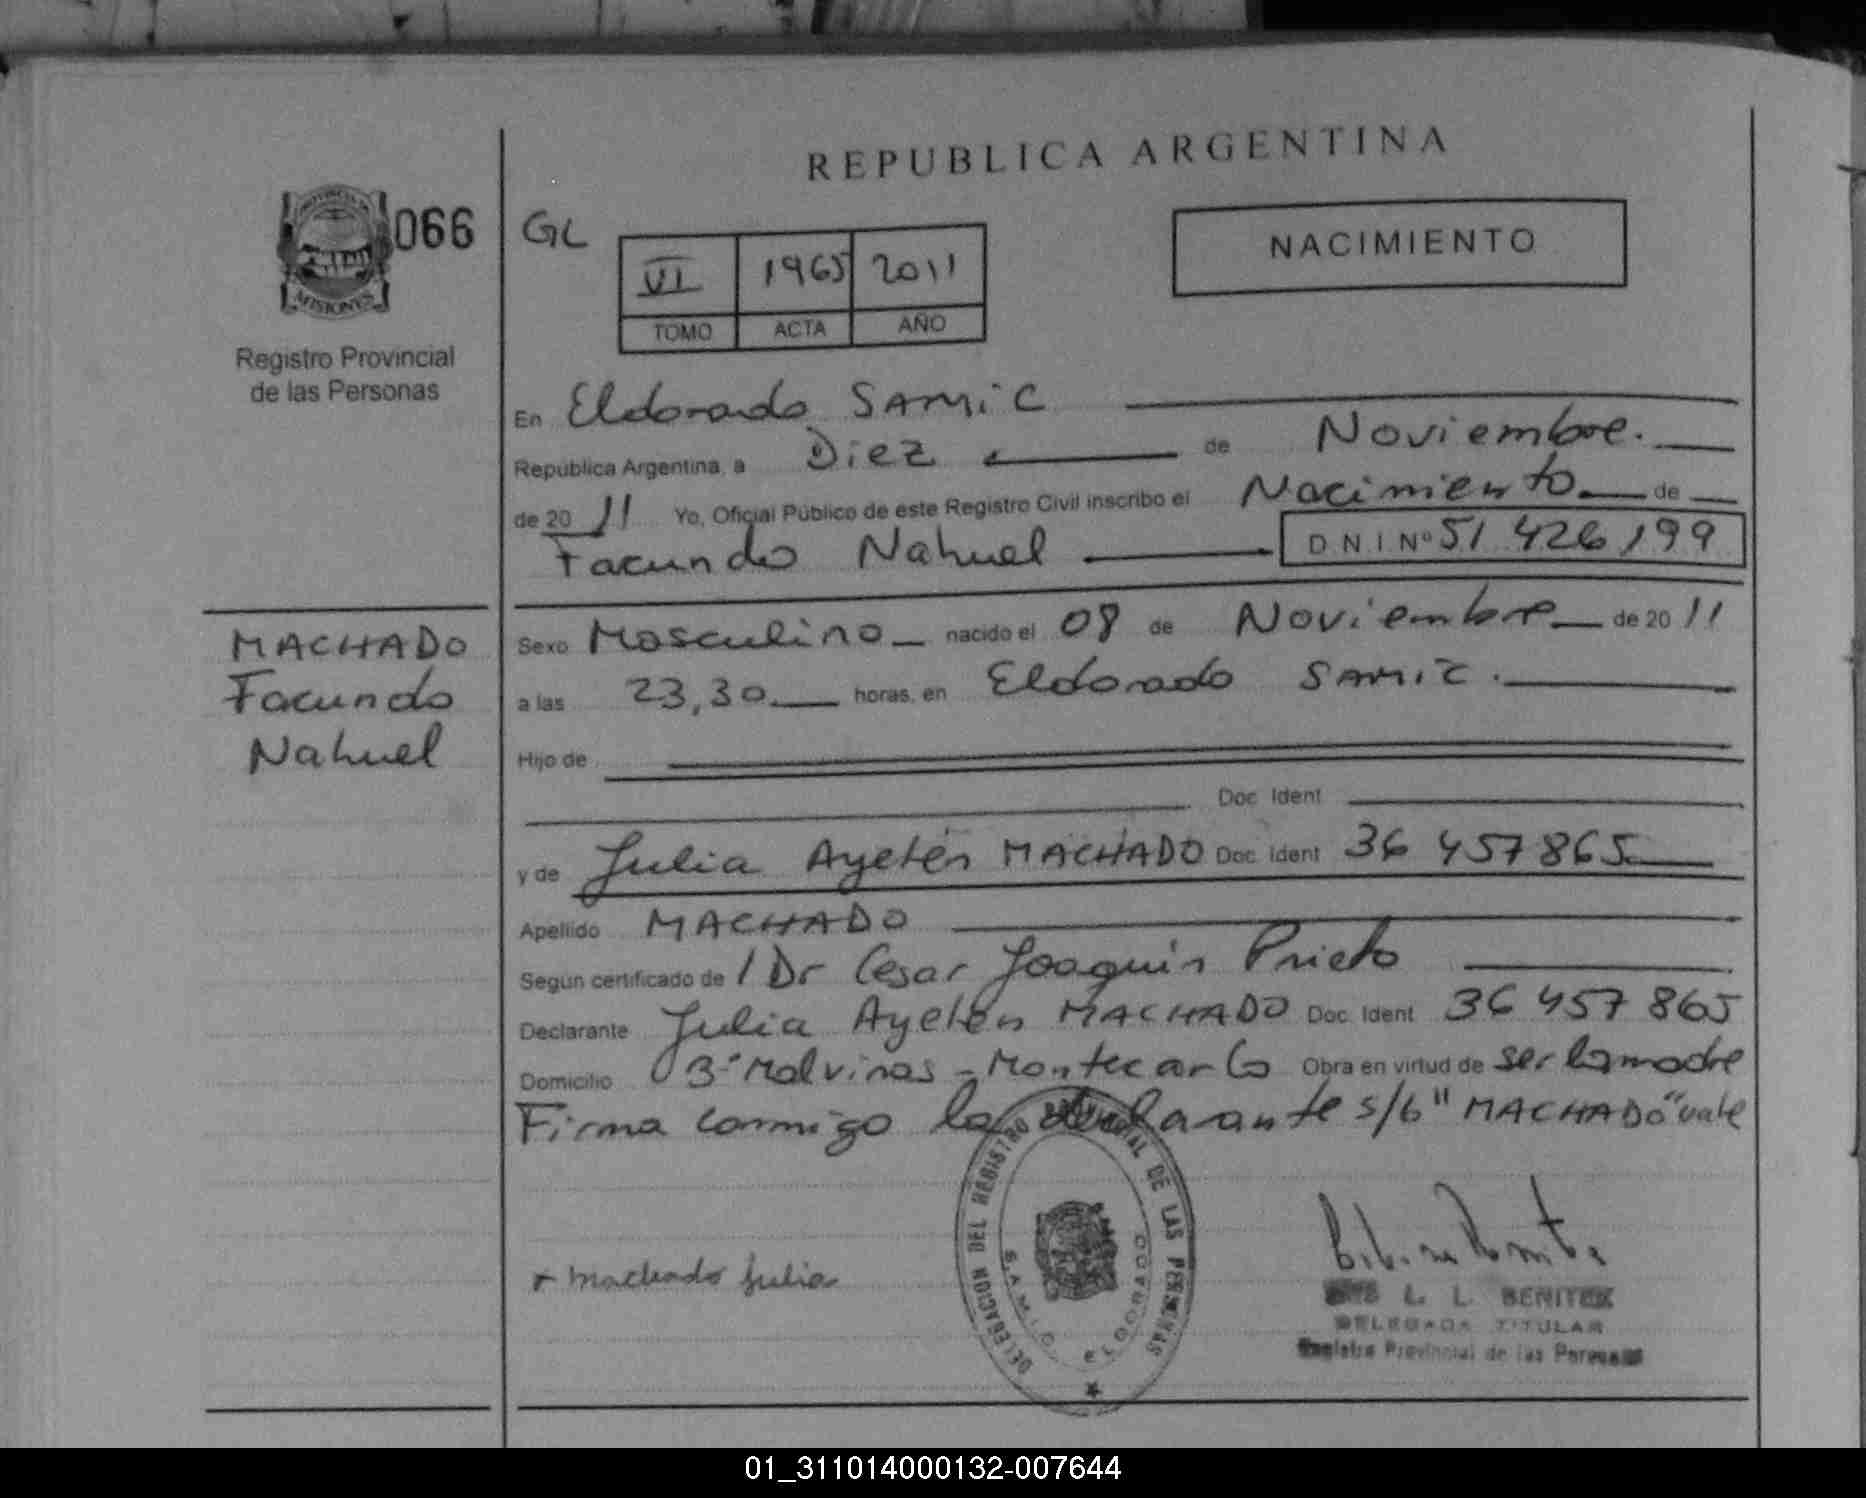 REPUBLICA ARGENTINA
PROVINCIA DE
MISIONES
066
GL
VI 1965 2011
TOMO ACTA AÑO
NACIMIENTO
Registro Provincial
de las Personas
En Eldorado SAMiC
República Argentina, a Diez de Noviembre.
de 2011 Yo, Oficial Público de este Registro Civil inscribo el Nacimiento de
Facundo Nahuel D.N.I.Nº 51 426 199
MACHADO
Facundo
Nahuel
Sexo Masculino nacido el 08 de Noviembre de 2011
a las 23,30 horas, en Eldorado SAMiC.
Hijo de
Doc. Ident
y de Julia Ayelén MACHADO Doc. Ident 36 457 865
Apellido MACHADO
Según certificado de /Dr Cesar Joaquín Prieto
Declarante Julia Ayelén MACHADO Doc. Ident 36 457 865
Domicilio Bº Malvinas - Montecarlo Obra en virtud de ser la madre
Firma conmigo la declarante s/b "MACHADO" vale
DELEGACION DEL REGISTRO PROVINCIAL DE LAS PERSONAS
S.A.M.I.C. ELDORADO
+ Machado Julia
L. L. BENITEZ
DELEGADA TITULAR
Registro Provincial de las Personas
01_311014000132-007644